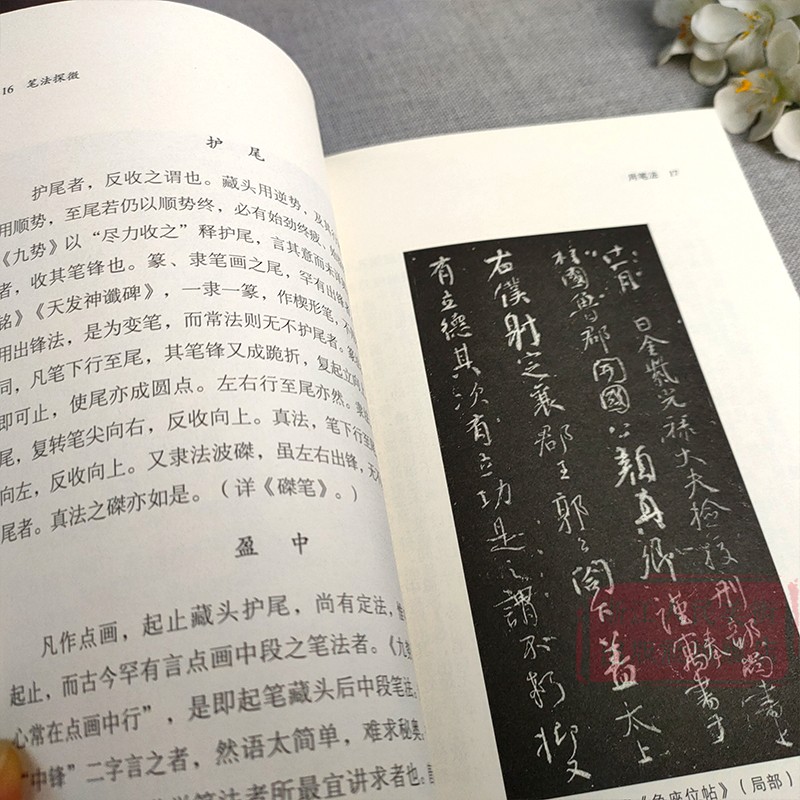 16 笔法探微
护 尾
护尾者，反收之谓也。藏头用逆势、及其
用顺势，至尾若仍以顺势终，必有始劲终疲、
《九势》以“尽力收之”释护尾，言其意而未
者，收其笔锋也。篆、隶笔画之尾，罕有出锋
铭》《天发神谶碑》，一隶一篆，作楔形笔，不
用出锋法，是为变笔，而常法则无不护尾者。篆
同，凡笔下行至尾，其笔锋又成跪折，复起立向
即可止，使尾亦成圆点。左右行至尾亦然。隶
尾，复转笔尖向右，反收向上。真法，笔下行至
向左，反收向上。又隶法波磔，虽左右出锋，
尾者。真法之磔亦如是。（详《磔笔》。）
盈 中
凡作点画，起止藏头护尾，尚有定法，
起止，而古今罕有言点画中段之笔法者。《九势
心常在点画中行”，是即起笔藏头后中段笔法
“中锋”二字言之者，然语太简单，难求秘奥
笔法者所最宜讲求者也。
用笔法 17
十一月 日金紫光禄大夫检校刑部尚书上
柱國魯郡開國公顏真卿謹寓書于
右僕射定襄郡王郭公閤下蓋太上
有立德其次有立功是之謂不朽抑又
《争座位帖》（局部）